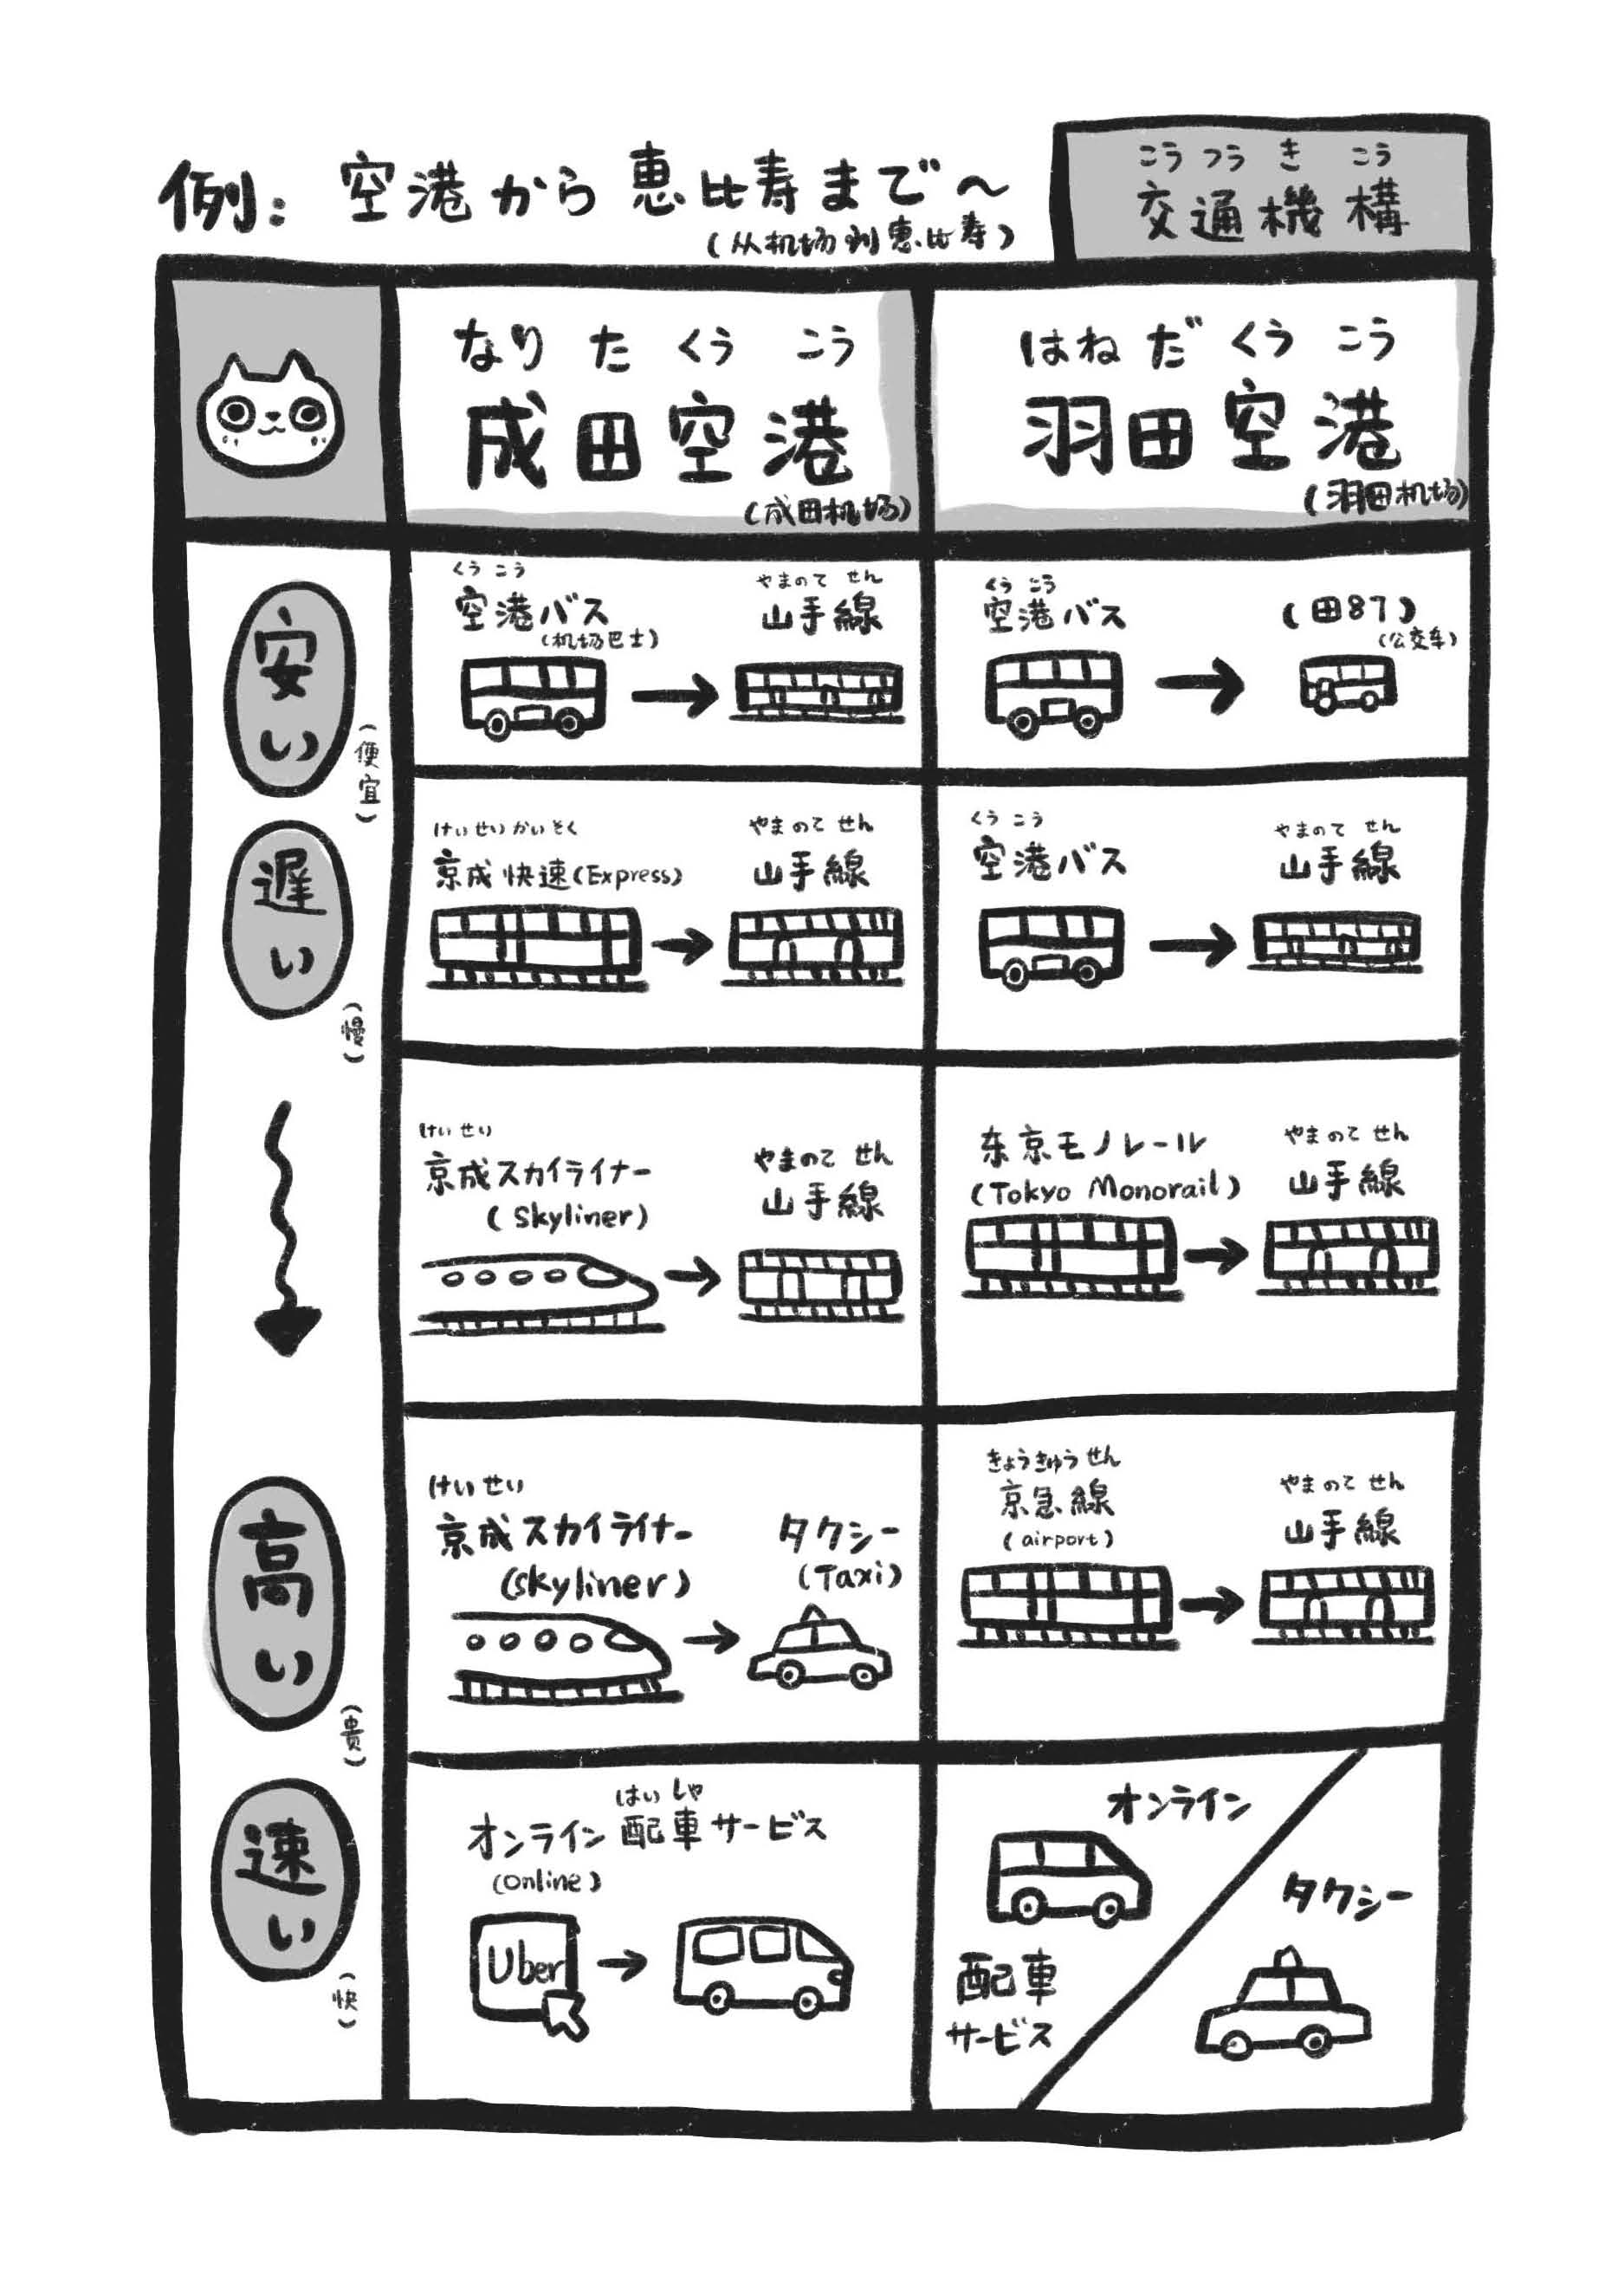 例: 空港から恵比寿まで〜
(从机场到恵比寿)
こうつうきこう
交通機構
なりたくうこう
成田空港
(成田机场)
はねだくうこう
羽田空港
(羽田机场)
安い
(便宜)
くうこう
空港バス
(机场巴士)
やまのてせん
山手線
くうこう
空港バス
(田87)
(公交车)
遅い
(慢)
けいせいかいそく
京成快速(Express)
やまのてせん
山手線
くうこう
空港バス
やまのてせん
山手線
けいせい
京成スカイライナー
(Skyliner)
やまのてせん
山手線
东京モノレール
(Tokyo Monorail)
やまのてせん
山手線
高い
(贵)
けいせい
京成スカイライナー
(skyliner)
タクシー
(Taxi)
きょうきゅうせん
京急線
(airport)
やまのてせん
山手線
速い
(快)
はいしゃ
オンライン配車サービス
(Online)
Uber
オンライン
配車
サービス
タクシー